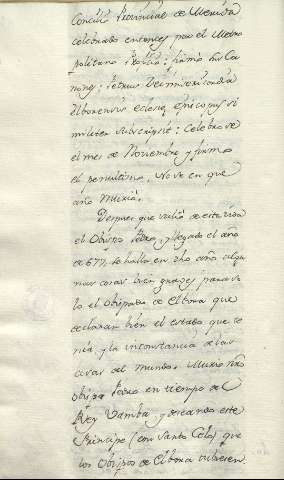 Concilio Provincial de Merida
celebrado entonces por el Metro
politano Proficio: firmó sus Ca
nones: Petrus Dei misericordia
Elborensis eclesie episcopus si
militer subscripsit: Celebrose
el mes de Noviembre y firmo
el penultimo. No se en que
año murió.
Despues que salió de esta vida
el Obispo Pedro, y llegado el año
de 677, se halla en dho año algu
nas cosas bien graves para so
lo el obispado de Elbora que
declaran bien el estado que te
nia, y la inconstancia de las
cosas del mundo. Murio nro
obispo Pedro en tiempo del
Rey Vamba, y deseando este
Principe (con santo Celo) que
los Obispos de Elbora